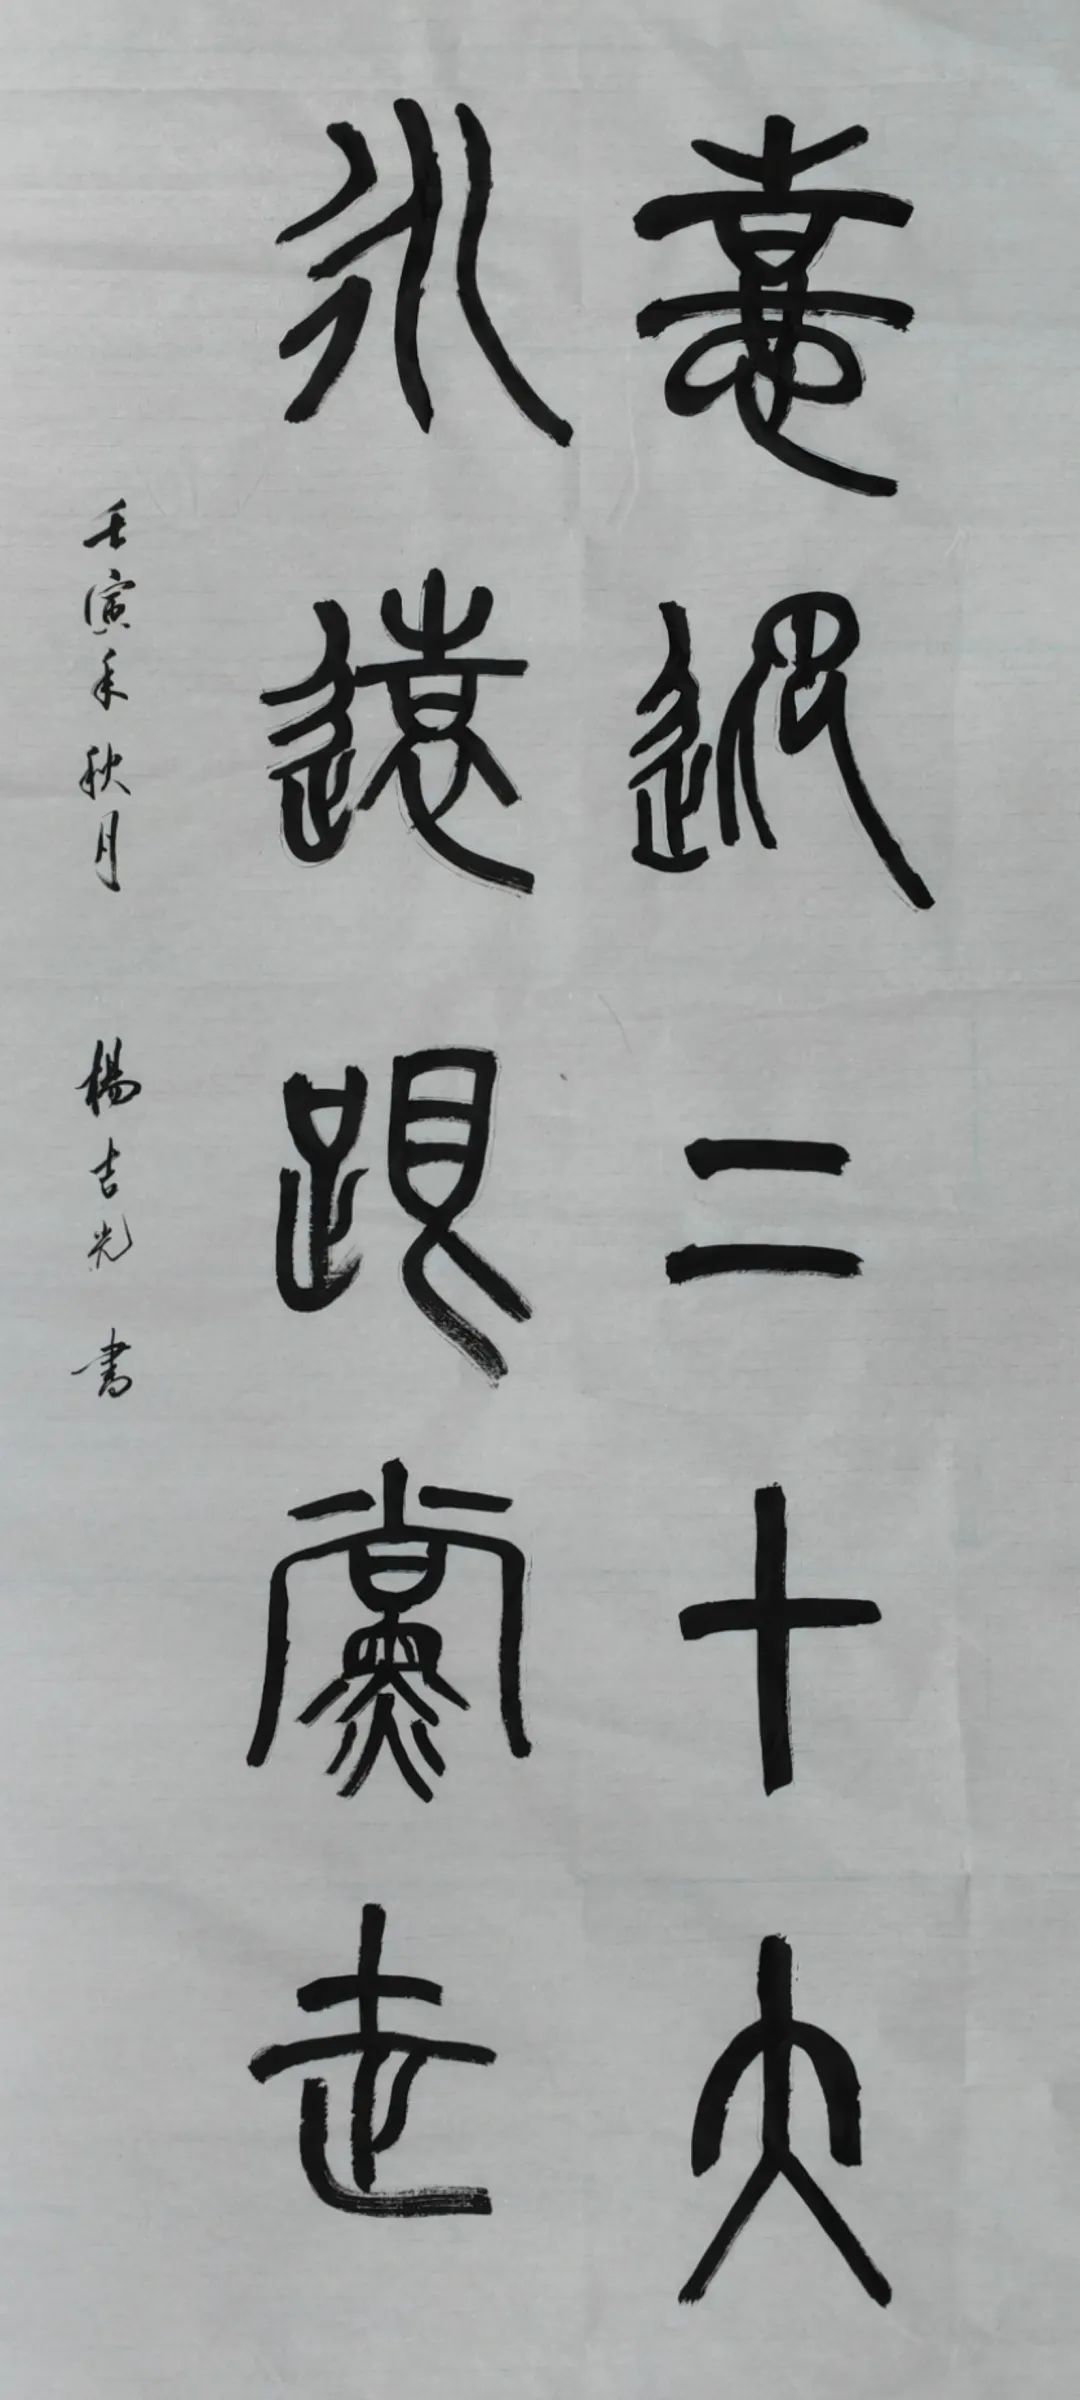 憙迎二十大
永遠跟黨走
壬寅年秋月 楊吉光書